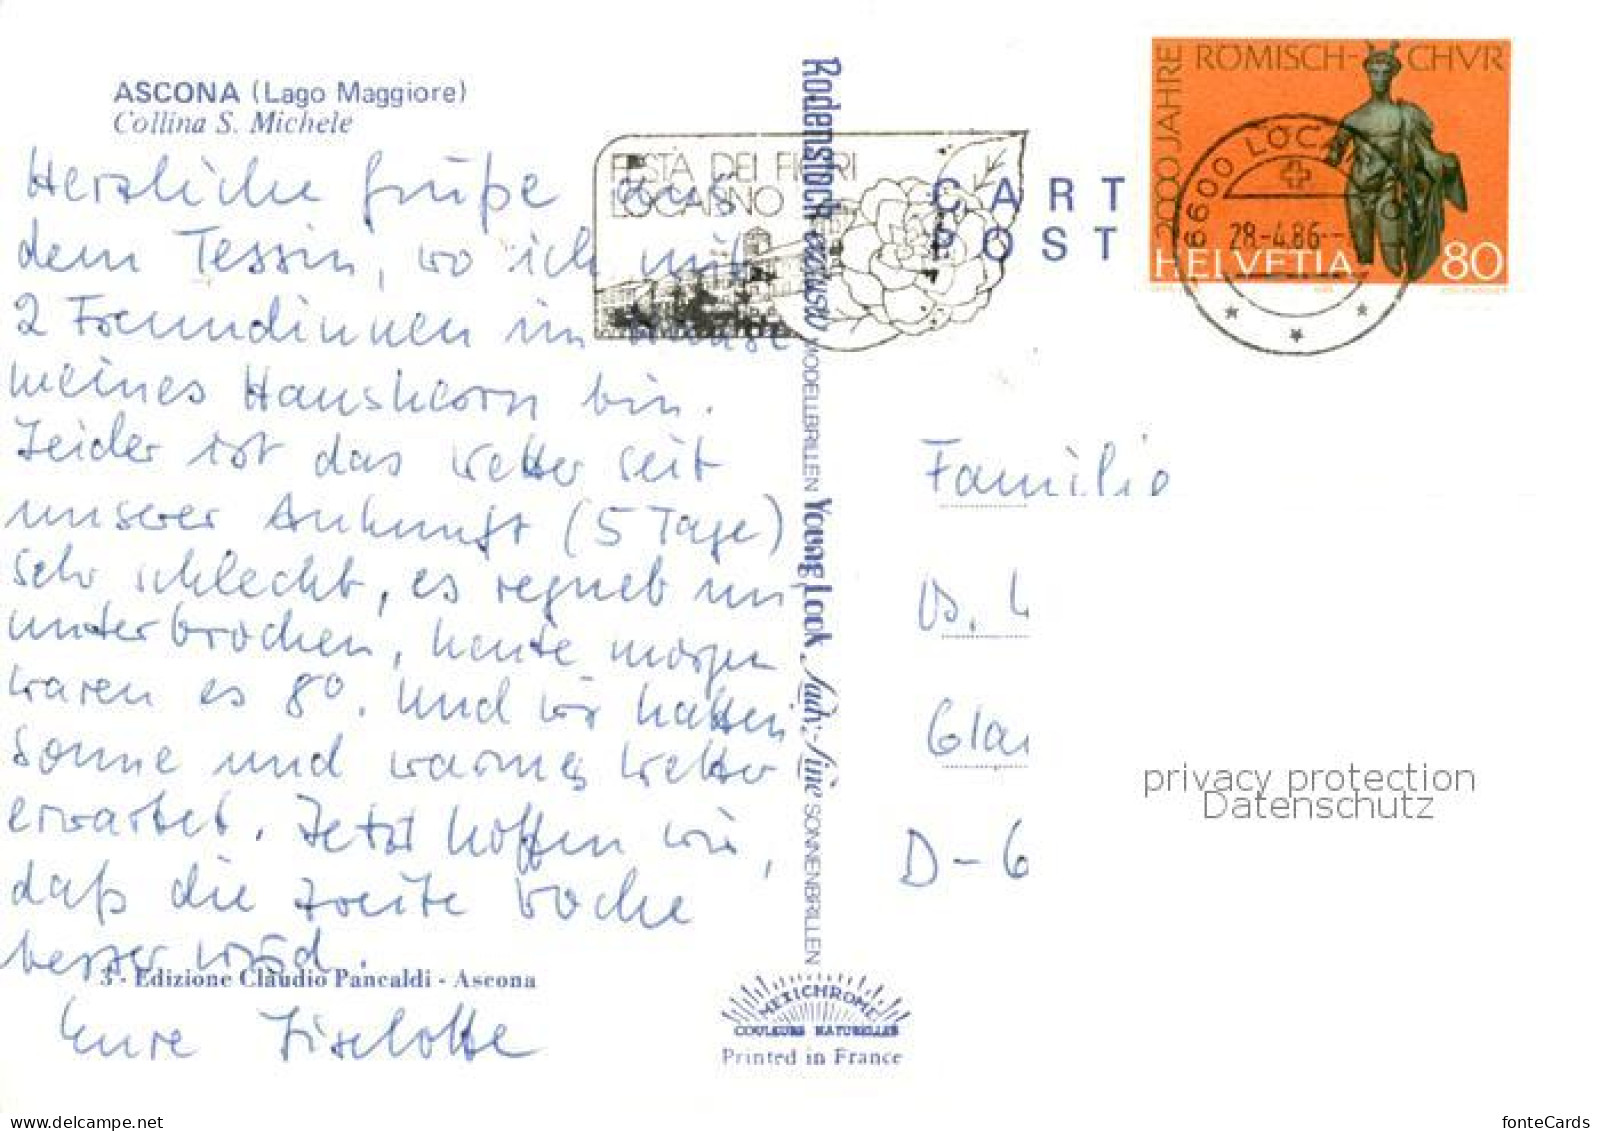 ASCONA (Lago Maggiore)
Collina S. Michele
Herzliche Grüße aus
dem Tessin, wo ich mit
2 Freundinnen im Hause
meines Hausherrn bin.
Leider ist das Wetter seit
unserer Ankunft (5 Tage)
sehr schlecht, es regnet un
unterbrochen, heute morgen
waren es 8º. Und wir hatten
Sonne und warmes Wetter
erwartet. Jetzt hoffen wir,
daß die zweite Woche
besser wird.
3 - Edizione Claudio Pancaldi - Ascona
Eure Liselotte
FESTA DEI FIORI
LOCARNO
Rodenstock exclusiv MODELLBRILLEN Young Look Lady-Line SONNENBRILLEN
MEXICHROME
COULEURS NATURELLES
Printed in France
CART
POST
2000 JAHRE RÖMISCH-CHVR
HELVETIA 80
6600 LOCARNO
28-4.86--
Familie
Gla
D-6
privacy protection
Datenschutz
fonteCards